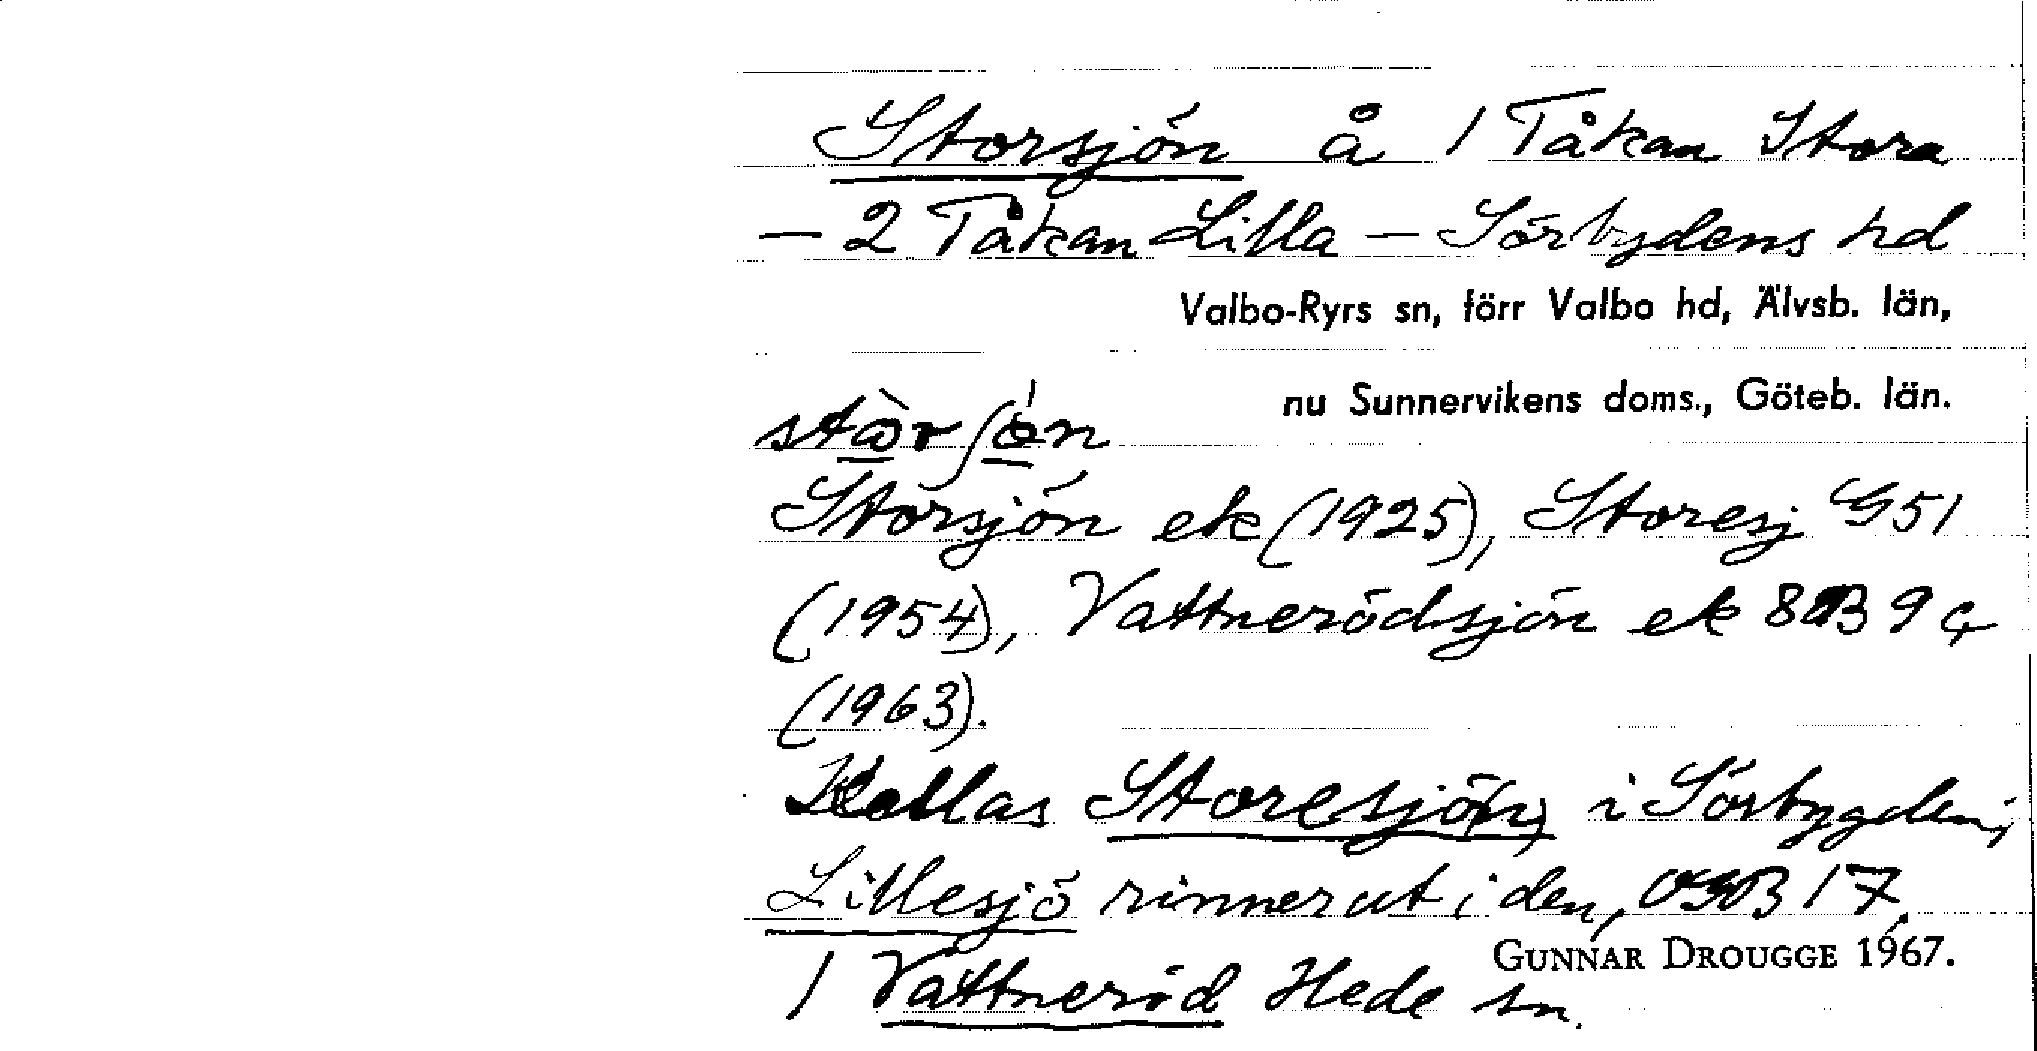 Storsjön å 1 Tåkan Stora
— 2 Tåkan Lilla — Sörbydens hd
Valbo-Ryrs sn, förr Valbo hd, Älvsb. län,
nu Sunnervikens doms., Göteb. län.
Storsjön ek (1925), Storesj G51
(1954), Vattnerödsjön ek 8B 9
(1963).
Kallas Storesjö(n) i Sörbygden;
Lillesjö rinner ut i den, 17.
GUNNAR DROUGGE 1967.
1 Vattneröd Hede sn.